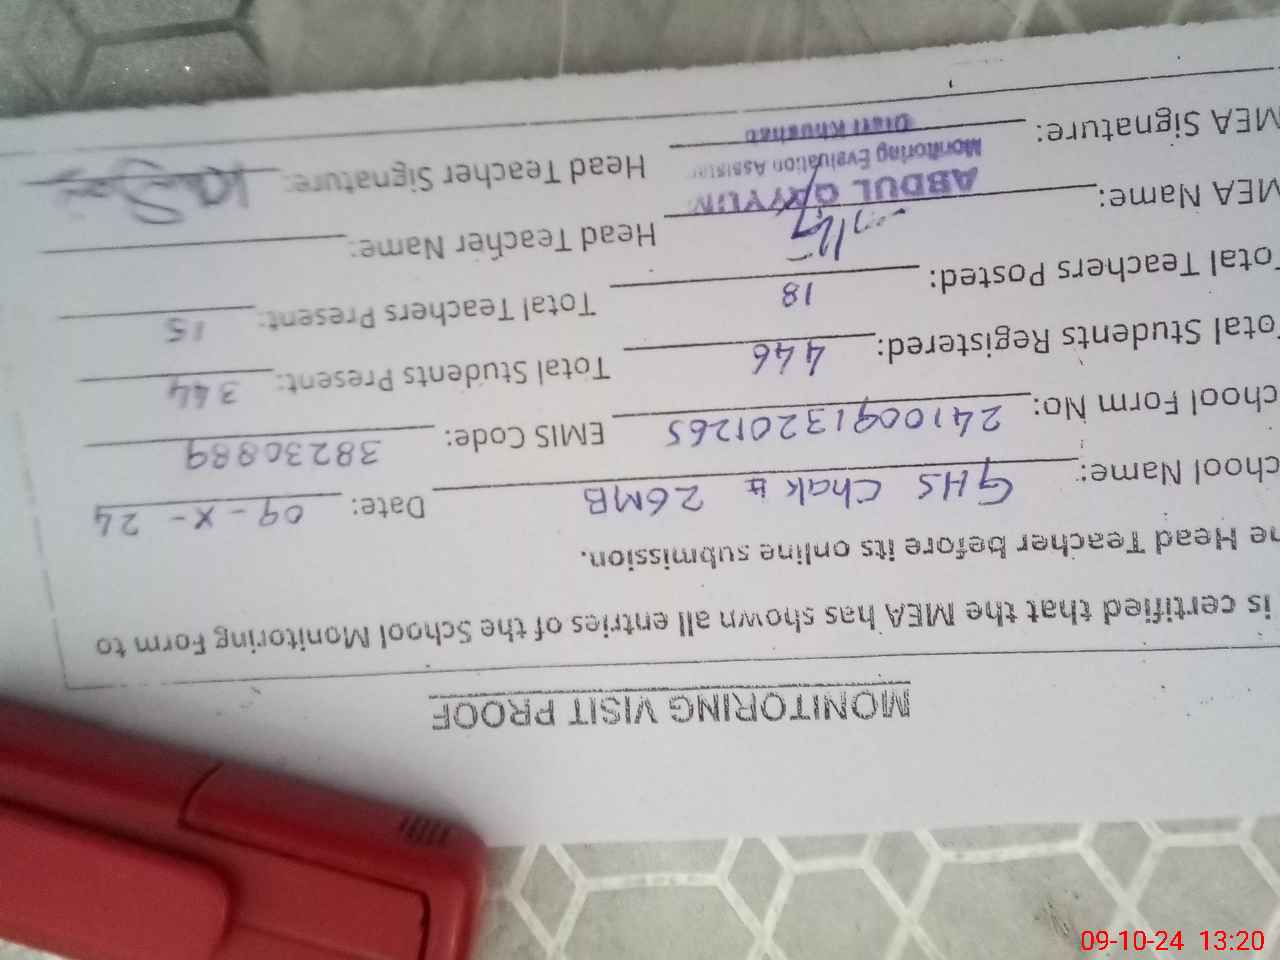 MONITORING VISIT PROOF
is certified that the MEA has shown all entries of the School Monitoring Form to
he Head Teacher before its online submission.
chool Name: GHS Chak # 26MB Date: 09-X-24
chool Form No: 24100913201265 EMIS Code: 38230889
otal Students Registered: 446 Total Students Present: 344
otal Teachers Posted: 18 Total Teachers Present: 15
MEA Name: ABDUL QAYYUM Head Teacher Name:
Monitoring Evaluation Assistant
MEA Signature: Distt Khushab Head Teacher Signature:
09-10-24 13:20